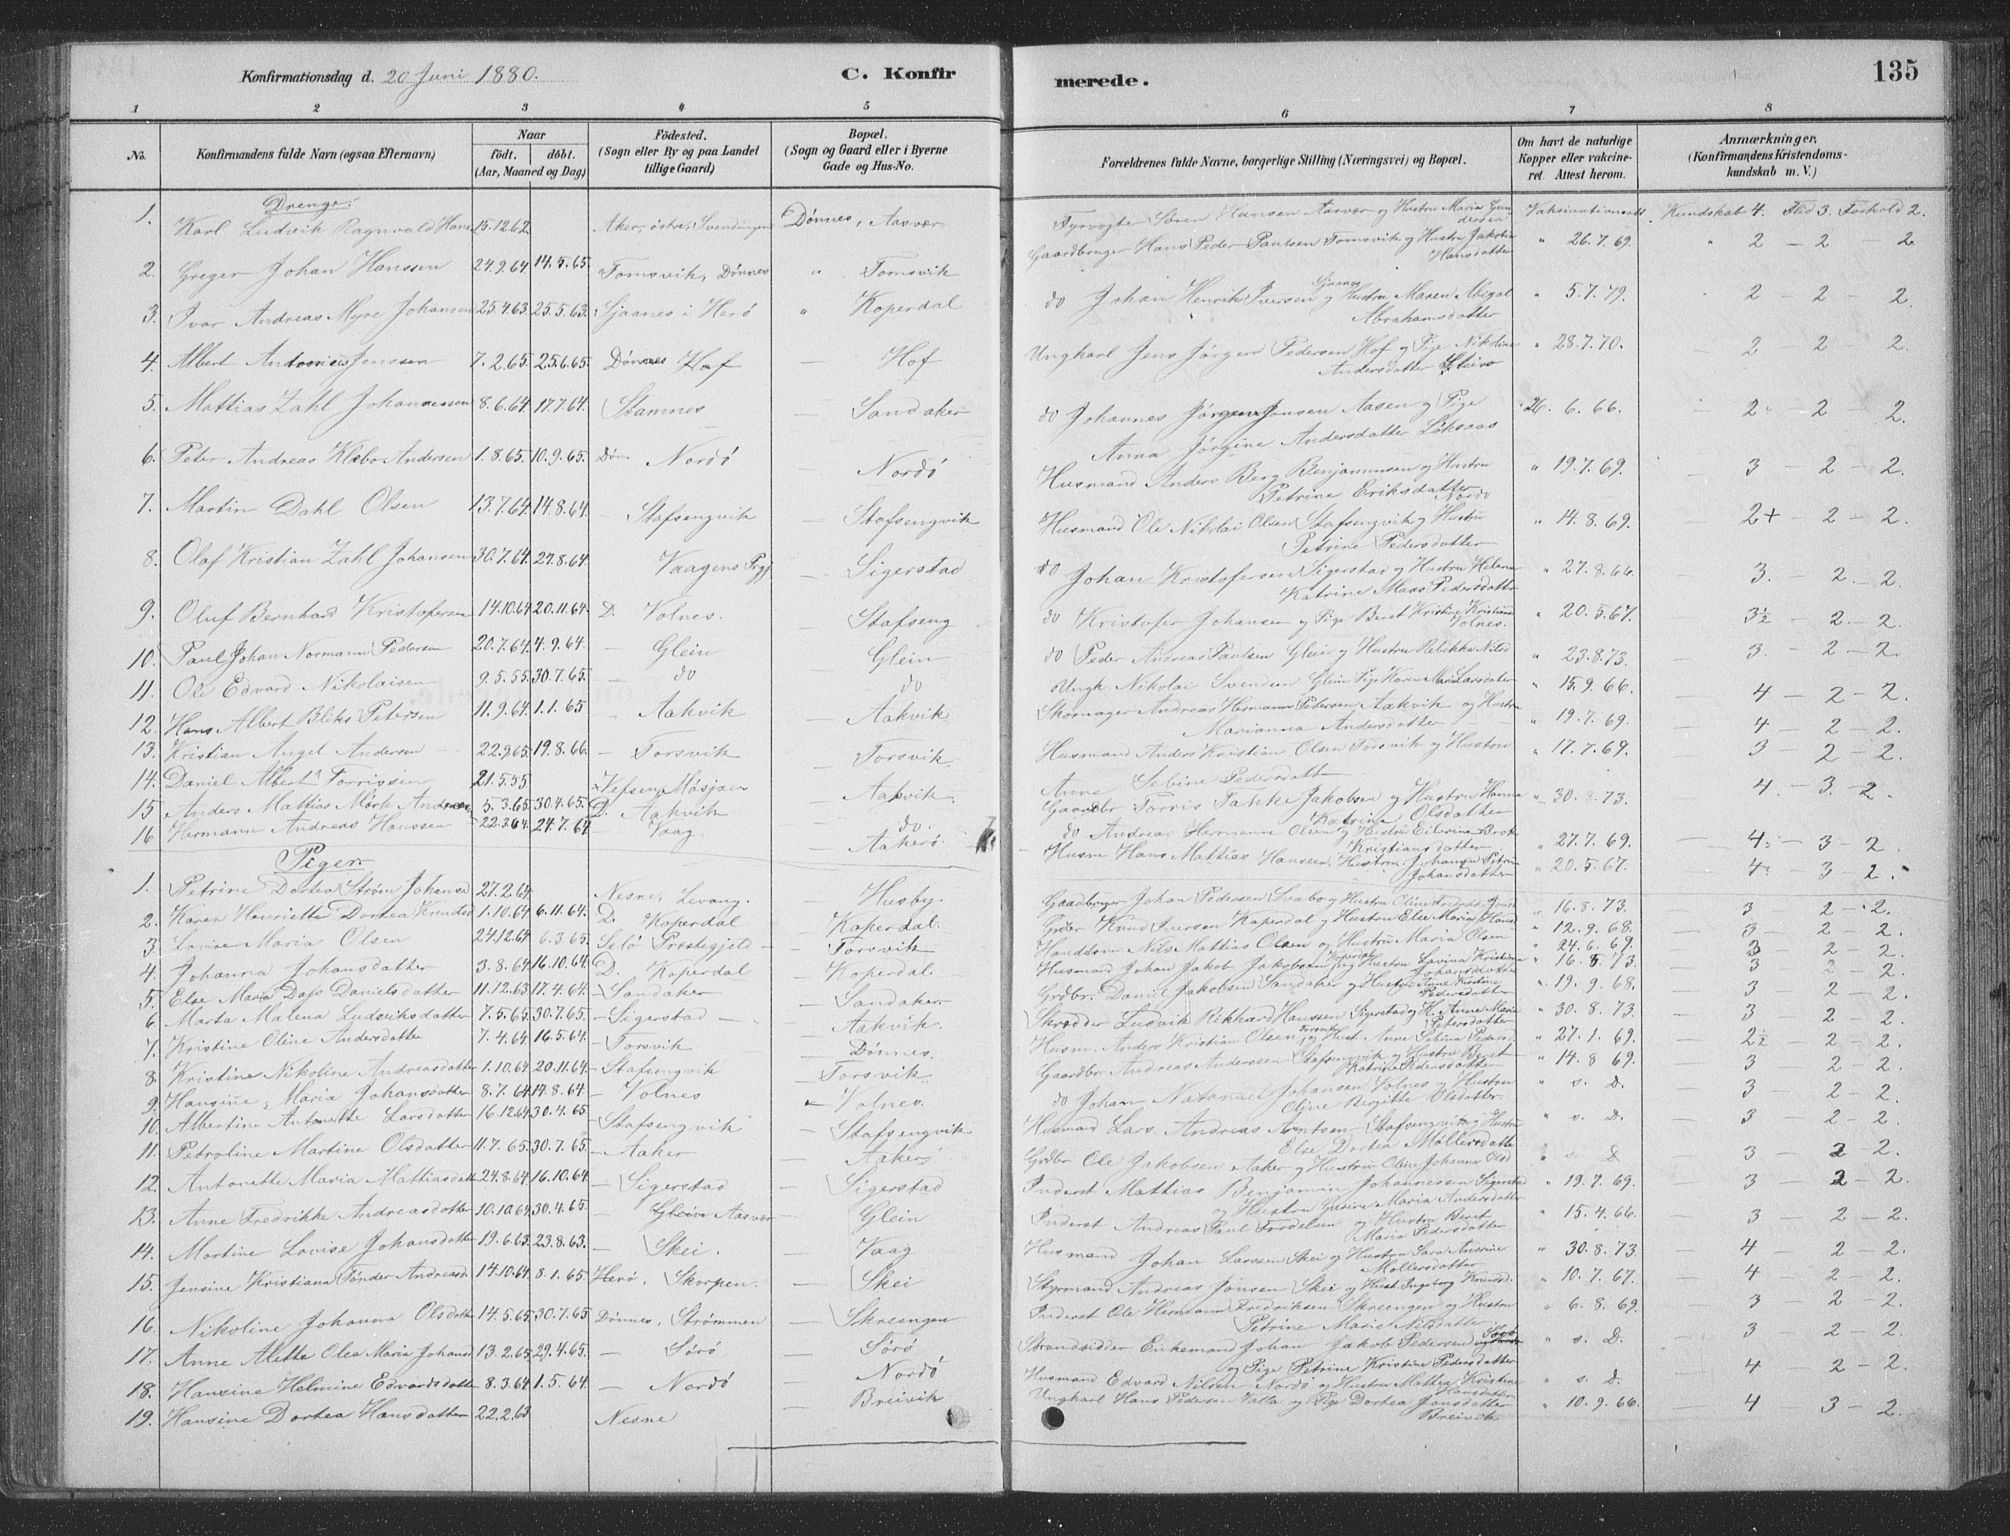 Konfirmationsdag d. 20 Juni 1880. C. Konfir merede. 135
1 2 3 4 5 6 7 8
No. Konfirmandens fulde Navn (ogsaa Efternavn) Naar født. døbt. (Aar, Maaned og Dag) Fødested. (Sogn eller By og paa Landet tillige Gaard) Bopæl. (Sogn og Gaard eller i Byerne Gade og Hus-No. Forældrenes fulde Navne, borgerlige Stilling (Næringsvei) og Bopæl. Om havt de naturlige Kopper eller vakcineret Attest herom. Anmærkninger. (Konfirmandens Kristendomskundskab m. V.)
Drenge.
1. Karl Ludvik Ragnvald Hans 15.12.62 Aker, østre, Svendingen Dønnes, Aasvær Fyrvogter Søren Hansen Aasvær og Hustru Maria Kundskab 4. Flid 3. Forhold 2.
2. Greger Johan Hanssen 24.9.64 14.5.65. Tomsvik, Dønnes " Tomsvik Gaardbruger Hans Peder Paulsen Tomsvik og Hustru Jakobia Hansdatter " 26.7.69. " 2 - 2 - 2
3. Ivar Andreas Myre Johansen 25.4.63 25.5.63. Sjaanes i Herø " Koperdal do Johan Henrik Iversen og Hustru Maren Abigal Abrahamsdatter " 5.7.79. 2 - 2 - 2.
4. Albert Antonius Jenssen 7.2.65 25.6.65 Dønnes Hof - Hof Ungkarl Jens Jørgen Pedersen Hof og Pige Nikoline Andersdatter " 28.7.70. - 2 - 2 - 2.
5. Mattias Zahl Johannessen 8.6.64 17.7.64. Stamnes - Sandaker do Johannes Jørgen Jonsen Aasen og Pige Anna Jørgine Andersdatter Løksaas 26.6.66. - 2 - 2 - 2.
6. Peter Andreas Klæbo Andersen 1.8.65 10.9.65. Døn. Nordø - Nordø Husmand Anders Berg Benjaminsen og Hustru Petrine Eriksdatter Nordø " 19.7.69. - 3 - 2 - 2.
7. Martin Dahl Olsen 13.7.64 14.8.64. - Stafsengvik - Stafsengvik Husmand Ole Nikolai Olsen Stafsengvik og Hustru Petrine Pedersdatter " 14.8.69. - 2+ - 2 - 2.
8. Olaf Kristian Zahl Johansen 30.7.64 27.8.64. Vaagens Prgj - Sigerstad do Johan Kristofersen Sigerstad og Hustru Helena Katrine Maas Pedersdatter " 27.8.66. - 3. - 2. - 2.
9. Oluf Bernhard Kristofersen 14.10.64 20.11.64. D. Volnes. - Stafseng do Kristofer Johansen og Pige Beret Kristine Volnes. " 20.5.67. - 3½ - 2. - 2.
10. Paul Johan Normann Pedersen 20.7.64 4.9.64. - Glein - Glein do Peder Andreas Paulsen Glein og Hustru Rebikka " 23.8.73. - 3. - 2 - 2.
11. Ole Edvard Nikolaisen 9.5.55 30.7.65. - do do Ungk Nikolai Svendsen Glein Pige Karen Marie Larsdatter " 15.9.66. - 4 - 2 - 2.
12. Hans Albert Bliks Petersen 11.9.64 1.1.65 - Aakvik - Aakvik Skomager Andreas Hermann Petersen Aakvik og Hustru Marianna Andersdatter " 19.7.69. - 4 - 2 - 2.
13. Kristian Angel Andersen 22.9.65 19.8.66. - Forsvik - Forsvik Husmand Anders Kristian Olsen Forsvik og Hustru Anne Sebine Pedersdatter " 17.7.69. - 3 2 - 2.
14. Daniel Albert Torrissen 21.5.55 Vefsen Mosjøen - Aakvik. Gaardbr Torris Jakobsen og Hustru Hanna Katrine Olsdatter " 30.8.73. 4. - 3. - 2.
15 Anders Mattias Mørk Andreas 5.3.65 30.4.65. D. Aakvik do. do Andreas Hermann Olsen og Hustru Eilerine Kristiansdatter " 27.7.69. - 4 - 3 - 2.
16 Hermann Andreas Hanssen 22.3.64 24.7.64 - Vaag - Aakerø. Husm Hans Mattias Hanssen Hustru Johanna Petra Johansdatter " 20.5.67. - 4 - 3 - 2.
Piger.
1. Petrine Dortea Strøm Johans 27.2.64 Nesne, Levang. - Husby. Gaardbruger Johan Pedersen Svabo og Hustru Oline Fredrikke " 16.8.73. 3 2 - 2.
2. Karen Henriette Dortea Knuds 1.10.64 6.11.64. D. Koperdal - Koperdal. Grdbr Knud Iversen Koperdal og Hustru Else Maria Hans " 12.9.68. - 3 - 2 - 2.
3. Lovise Maria Olsen 24.12.64 6.3.65. Selø Prestegjeld - Forsvik Nils Mattias Olsen og Hustru Maria Olsen " 24.6.69. - 3 - 2 - 2.
4. Johanna Johansdatter 3.8.64 16.10.64. D. Koperdal - Koperdal. Husmand Johan Jakob Jakobsen og Hustru Lovina Kristian Johansdatter " 16.8.73. - 3 2 - 2.
5. Else Maria Dass Danielsdatter 11.12.63 17.4.64. - Sandaker - Sandaker Grdbr. Daniel Jakobsen Sandaker og Hustru Anne Kirstine Pedersdatter " 19.9.68. - 3 - 2 - 2.
6. Marta Malena Ludviksdatter 7.5.65 30.7.65. - Sigerstad - - Aakvik. Skrædder Ludvik Rikhard Hanssen Sigerstad og H. Anne Marie Petersdatter " 30.8.73. - 3 - 2 - 2.
7. Kristine Oline Andersdatter 7.4.64 16.5.64. - Forsvik - Dønnes. Husm. Anders Kristian Olsen og Hust. Anne Sebina Peders " 27.1.69. - 2½ - 2 - 2.
8. Kristine Nikoline Andreasdatter 1.10.64 20.11.64. - Stafsengvik - Forsvik Gaardbr Andreas Andersen Stafsengvik og Hustru Beret Katrine Pedersdatter " 14.8.69. - 3 2 - 2.
9. Hansine Maria Johansdatter 8.7.64 14.8.64. - Volnes - Volnes do Johan Natanael Johansen Volnes og Hustru Oline Birgitte Olsdatter. " s. D. - 3 - 2 - 2.
10. Albertine Antonette Larsdatter 16.12.64 30.4.65 - Stafsengvik - Stafsengvik Husmand Lars Andreas Arntsen Stafsengvik og Hustru Else Dortea Møllersdatter " s. D. - 3 - 2 - 2.
11. Petroline Martine Olsdatter 11.7.65 30.7.65. - Aaker - Aaker Grdbr Ole Jakobsen Aaker og Hustru Oline Johanna Olsd " s. D. - 3 - 2 - 2.
12. Antonette Maria Mattiasdatt 24.8.64 16.10.64. - Sigerstad - Sigerstad Inderst Mattias Benjamin Johannesen Sigerstad og Hustru Maria Andersdatter " 19.7.69. - 3 - 2 - 2.
13. Anne Fredrikke Andreasdatter 10.10.64 30.4.65. - Glein Aasvær - Glein Inderst Andreas Paul Tordelsen og Hustru Beret Maria Pedersdatter " 15.4.66. - 3 - 2 - 2.
14. Martine Lovise Johansdatter 19.6.63 23.8.63. - Skei. - Vaag Husmand Johan Larssen Skei og Hustru Sara Møllersdatter " 30.8.73. - 4 2 - 2.
15. Jensine Kristiana Tønder Andreasd 14.10.64 8.1.65. Herø, Skorpen. - Skei Styrmand Andreas Jonsen Skei og Hust. Ingeborg Knudsd. " 10.7.67. - 4 - 2 - 2.
16. Nikoline Johanna Olsdatter 14.5.65 30.7.65 Dønnes, Strømmen - Skreengen Inderst Ole Hermann Fredriksen Skreengen og Hustru Petrine Marie Nilsdatter " 6.8.69. - 3 - 2 - 2.
17. Anne Alette Olea Maria Johansd 13.2.65 29.4.65. - Sørø - Sørø Strandsidder Enkemand Johan Jakob Pedersen Sørø og Pige Petrine Kristine Pedersdatter " s. D. - 3 - 2 - 2.
18. Hansine Helmine Edvardsdatter 8.3.64 1.5.64. - Nordø - Nordø Husmand Edvard Nilsen Nordø og Hustru Mattea Kristine Hansdatter " s. D. - 4 - 2 - 2.
19. Hansine Dortea Hansdatter 22.2.63 Nesne - Breivik Ungkarl Hans Pedersen Valla og Pige Dortea Jonsdatter Breivik " 10.9.66. - 4 - 3 - 2.